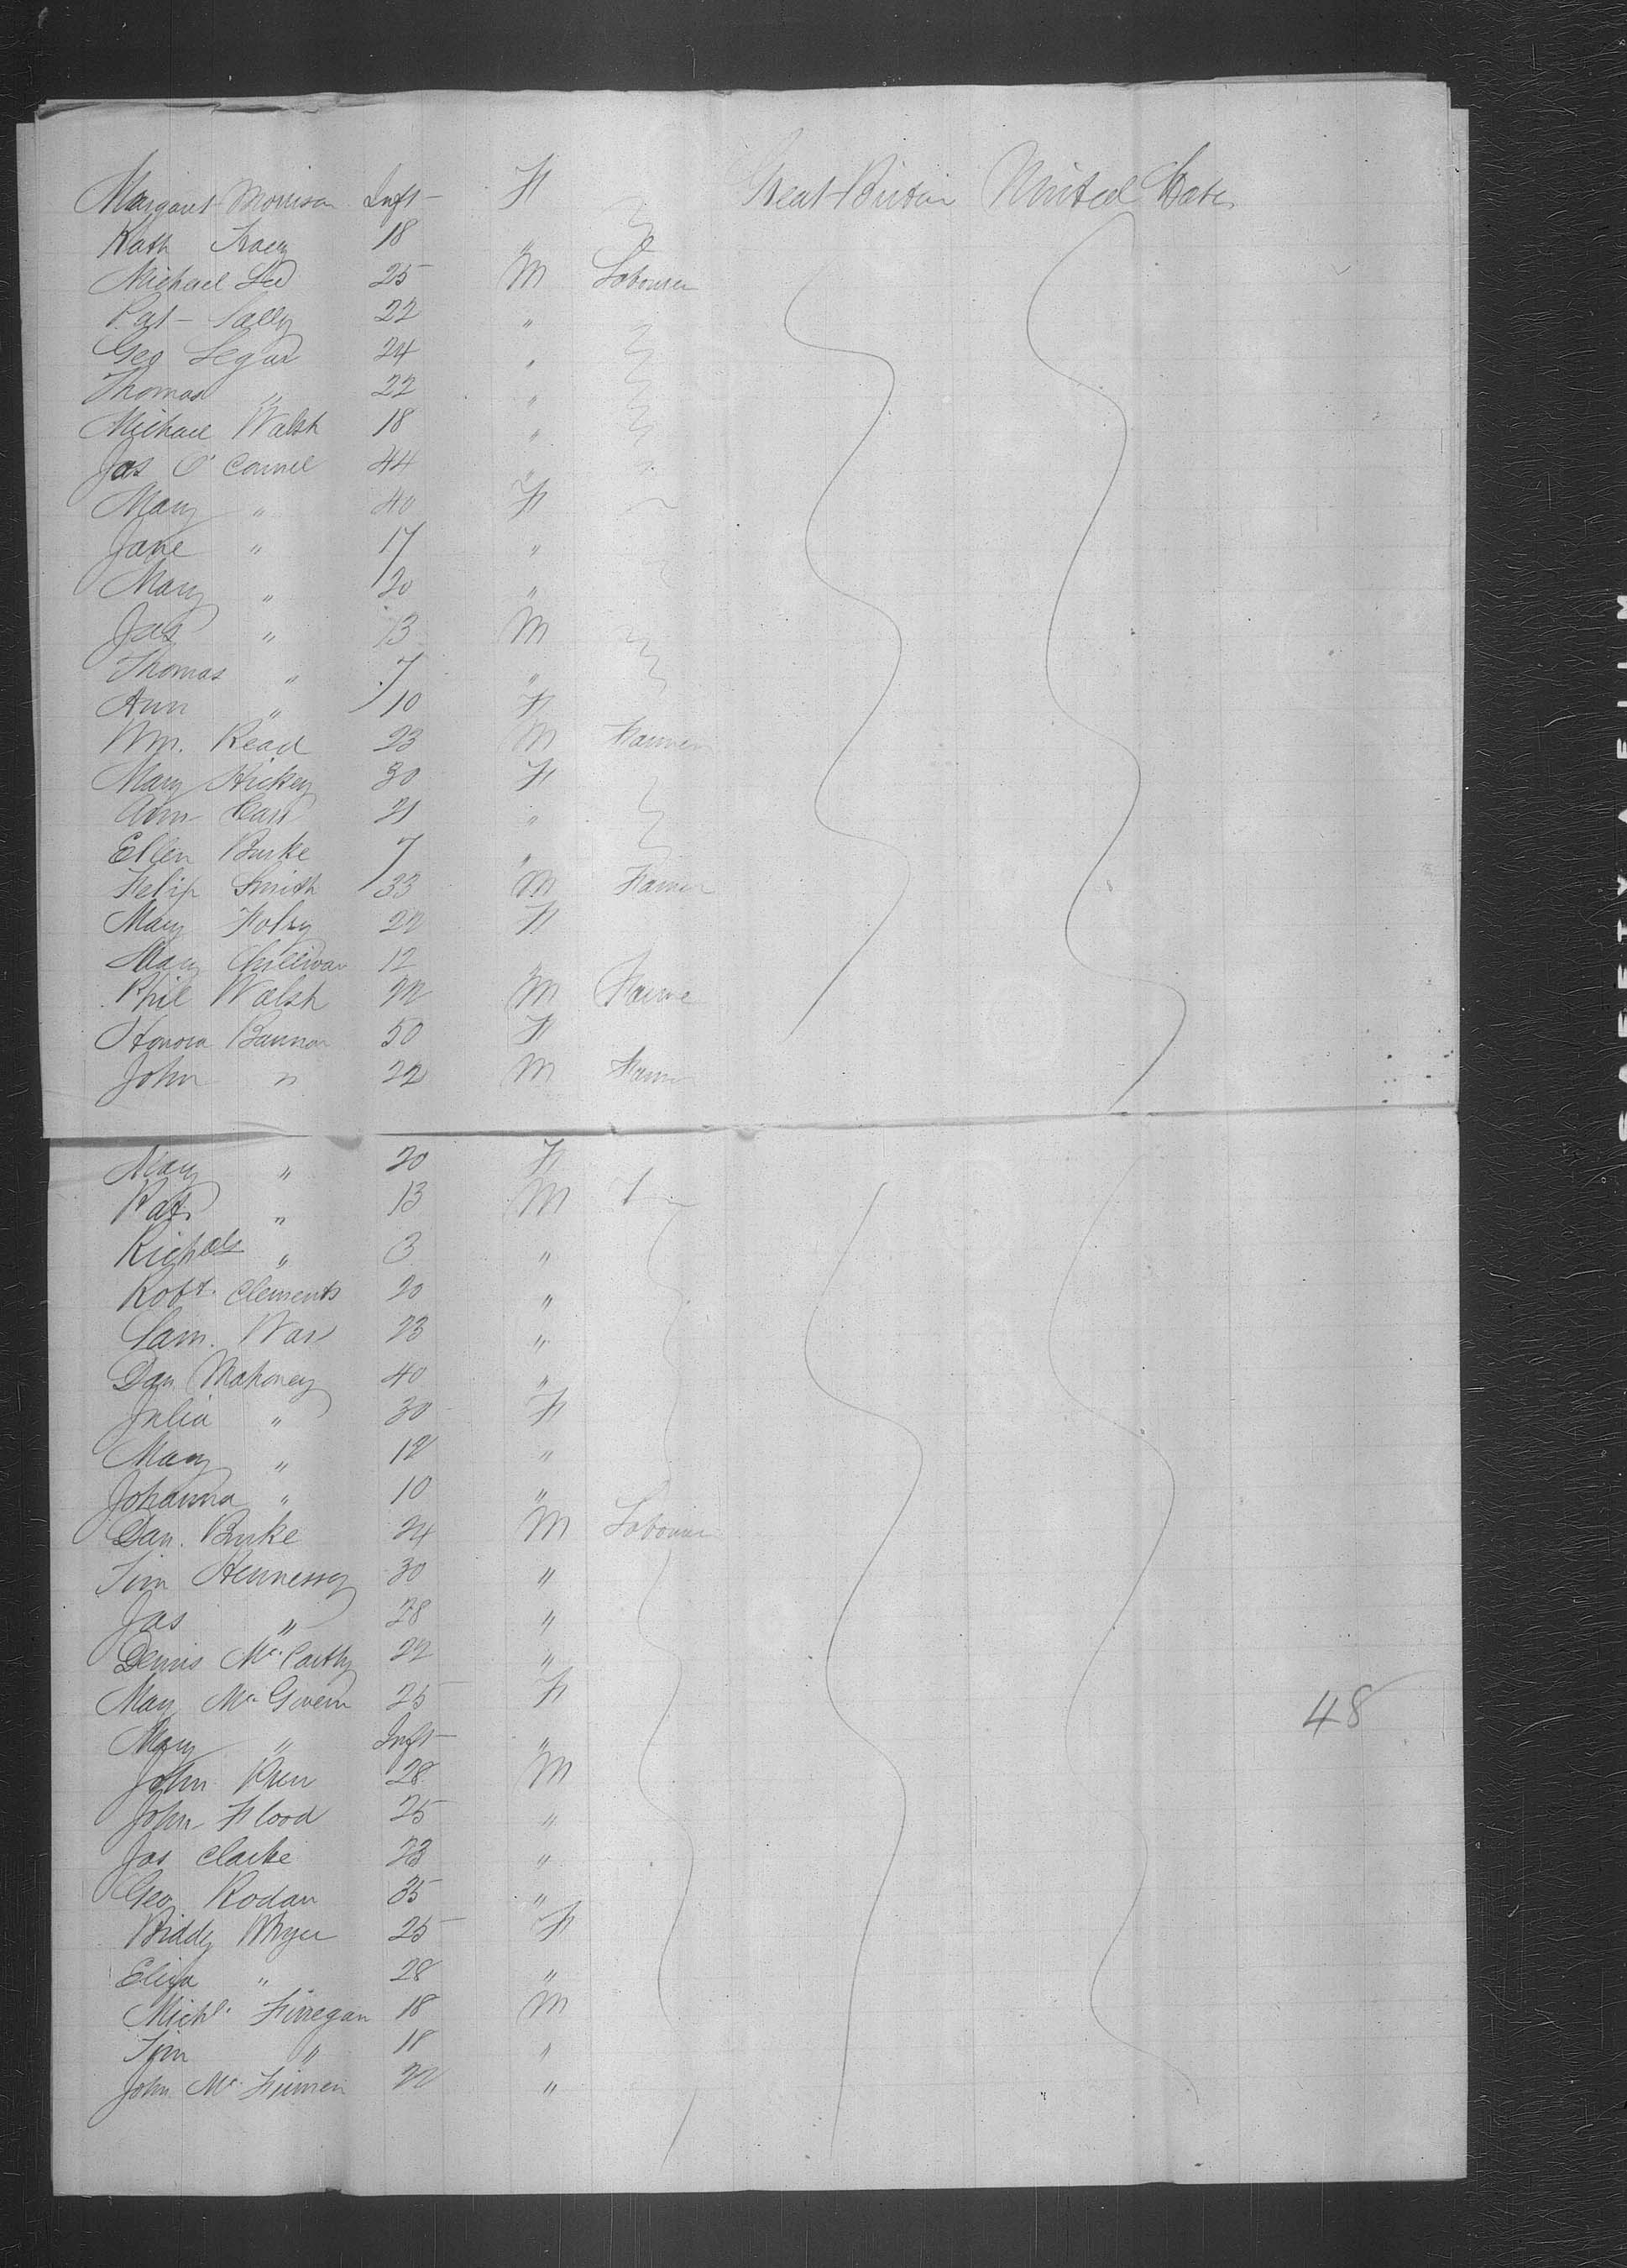 Margaret Morrison Inft F Great Britain United States
Kath Tracy 18 "
Michael Lee 25 M Labourer
Pat Lally 22 "
Geo Legar 24 "
Thomas " 22 "
Michael Walsh 18 "
Jas O'Connel 44 "
Mary " 40 F
Jane " 17 "
Mary " 20 "
Jas " 13 M
Thomas " 7 "
Ann " 10 F
Wm. Read 23 M Farmer
Mary Hickey 30 F
Ann Carr 21 "
Ellen Burke 7 "
Felip Smith 33 M Farmer
Mary Foley 22 F
Mary 12 "
Phil Walsh 22 M Farme
Honora Bannon 50 F
John " 22 M Farmer
Mary " 20 F
Pat " 13 M
Richd " 3 "
Robt. Clements 20 "
Sam. War 23 "
Dan Mahoney 40 "
Julia " 30 F
Mary " 12 "
Johanna " 10 "
Dan. Burke 24 M Labourer
Tim Hennessy 30 "
Jas " 28 "
Denis McCarthy 22 "
Mary McGovern 25 F
Mary " Inft "
John 28 M
John Flood 25 "
Jas Clarke 23 "
Geo Rodan 35 "
Biddy 25 F
Eliza " 28 "
Michl. Finegan 18 M
Tim " 18 "
John Mc 22 "
48
SAFETY FILM